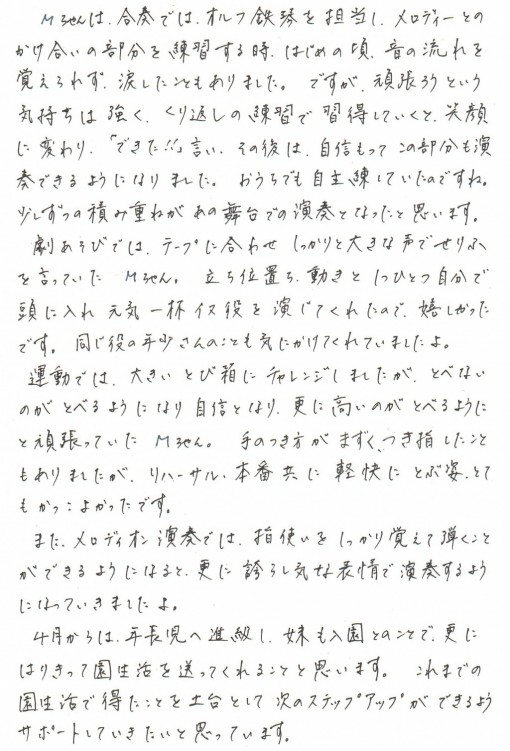 Mちゃんは、合奏では、オルフ鉄琴を担当し、メロディーとの
かけ合いの部分を練習する時、はじめの頃、音の流れを
覚えられず、涙したこともありました。ですが、頑張ろうという
気持ちは強く、くり返しの練習で習得していくと、笑顔
に変わり、「できた!!」言い、その後は、自信もって この部分も演
奏できるようになりました。おうちでも自主練していたのですね。
少しずつの積み重ねがあの舞台での演奏となったと思います。
劇あそびでは、テープに合わせ しっかりと大きな声でせりふ
を言っていた Mちゃん。立ち位置も、動きと 1つひとつ自分で
頭に入れ 元気一杯イヌ役を演じてくれたので、嬉しかった
です。同じ役の年少さんのことも気にかけてくれていましたよ。
運動では、大きいとび箱にチャレンジしましたが、とべない
のがとべるようになり自信となり、更に高いのがとべるように
と頑張っていた Mちゃん。手のつき方がまずく、つき指したこと
もありましたが、リハーサル・本番共に 軽快に とぶ姿、とて
もかっこよかったです。
また、メロディオン演奏では、指使いを しっかり覚えて弾くこと
ができるようになると、更に誇らし気な表情で演奏するよう
になっていきましたよ。
4月からは、年長児へ進級し、妹も入園とのことで、更に
はりきって園生活を送ってくれることと思います。これまでの
園生活で得たことを土台として次のステップアップができるよう
サポートしていきたいと思っています。